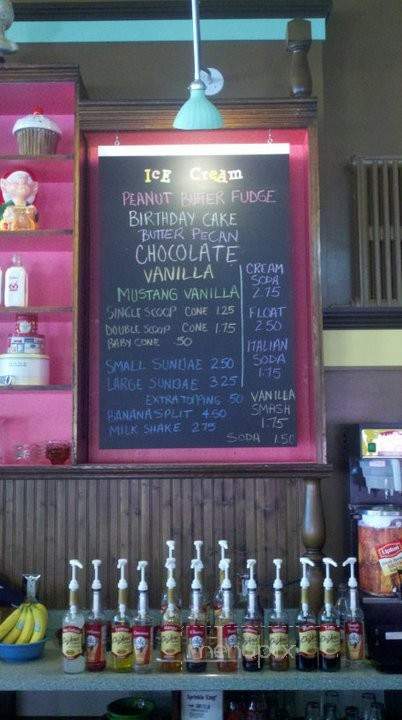 Ice Cream
PEANUT BUTTER FUDGE
BIRTHDAY CAKE
BUTTER PECAN
CHOCOLATE
VANILLA
MUSTANG VANILLA
SINGLE SCOOP CONE 1.25
DOUBLE SCOOP CONE 1.75
BABY CONE 50
SMALL SUNDAE 2.50
LARGE SUNDAE 3.25
EXTRA TOPPING 50
BANANA SPLIT 4.50
MILK SHAKE 2.75
CREAM
SODA
2.75
FLOAT
2.50
ITALIAN
SODA
1.75
VANILLA
SMASH
1.75
SODA 1.50
Lipton
menupix
Sprinkle King